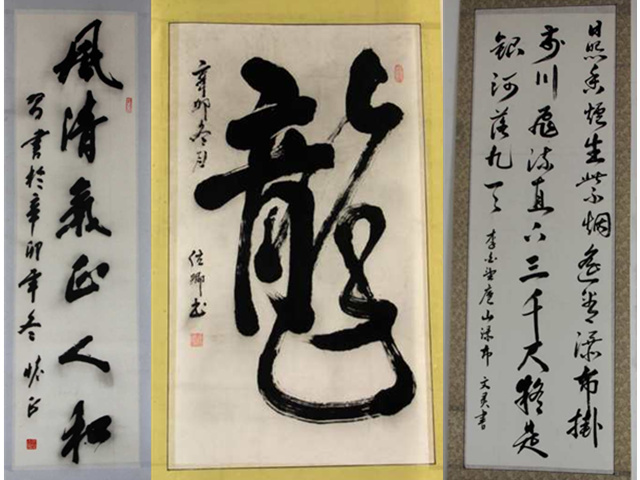 風清氣正人和
書於辛卯年冬
辛卯冬月
龍
日照香爐生紫烟遙看瀑布掛
前川飛流直下三千尺疑是
銀河落九天
李白望廬山瀑布 文美書